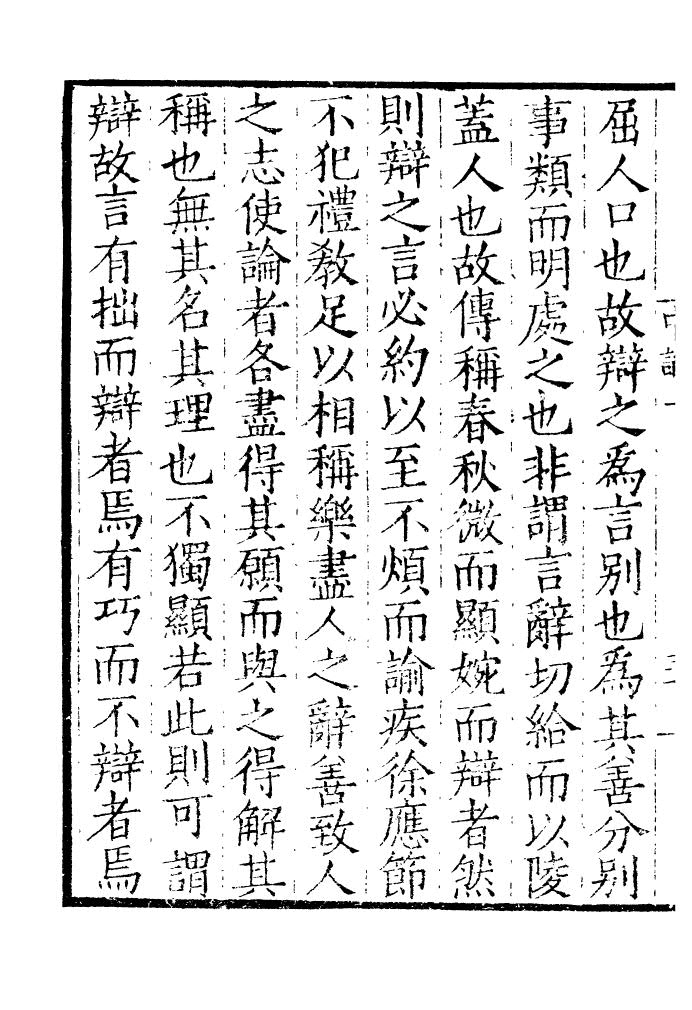 屈人口也故辯之爲言别也爲其善分别
事類而明處之也非謂言辭切給而以陵
蓋人也故傳稱春秋微而顯婉而辯者然
則辯之言必約以至不煩而諭疾徐應節
不犯禮敎足以相稱樂盡人之辭善致人
之志使論者各盡得其願而與之得解其
稱也無其名其理也不獨顯若此則可謂
辯故言有拙而辯者焉有巧而不辯者焉